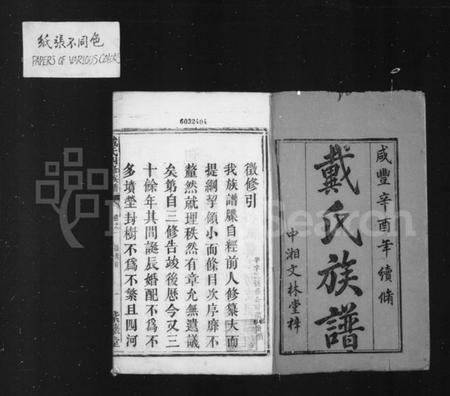 紙張不同色
PAPERS OF VARIOUS COLORS
6032404
咸豐辛酉年續脩
戴氏族譜
中湘文林堂梓
徵修引
我族譜牒自經前人修纂大而
提綱挈領小而條目次序靡不
釐然就理秩然有章允無遺議
矣第自三修告竣後歷今又三
十餘年其間誕辰婚配不為不
多墳塋封樹不為不繁且四河